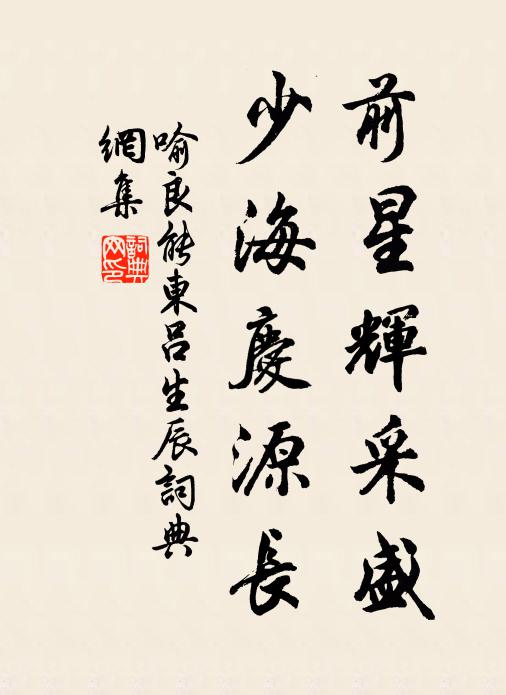 前星輝采盛
少海慶源長
喻良能東呂生辰詞典
網集
詞典
网印